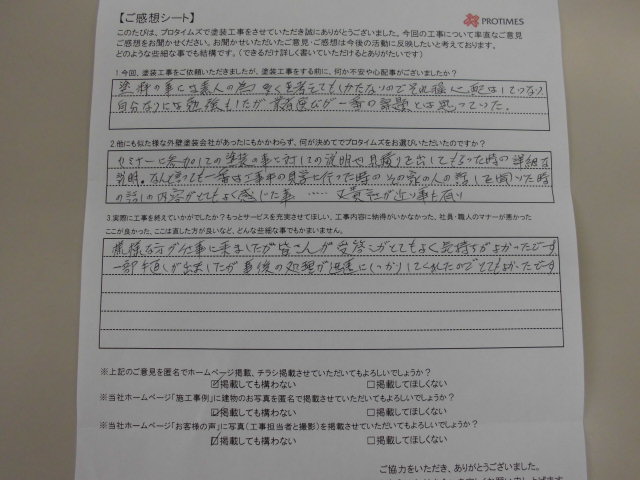 【ご感想シート】
PROTIMES
このたびは、プロタイムズで塗装工事をさせていただき誠にありがとうございました。今回の工事について率直なご意見
ご感想をお聞かせください。お聞かせいただいたご意見・ご感想は今後の活動に反映したいと考えております。
どのような些細な事でも結構です。(できるだけ詳しく書いていただけるとありがたいです)
1 今回、塗装工事をご依頼いただきましたが、塗装工事をする前に、何か不安や心配事がございましたか?
塗料の事は素人の為、色々考えてもしかたないのでそれ程心配はしてない
自分なりには勉強もしたが
が一番の課題とは思っていた。
2.他にも似た様な外壁塗装会社があったにもかかわらず、何が決めてでプロタイムズをお選びいただいたのですか?
セミナーに参加しての塗装の事に対しての説明や見積りを出してもらった時の詳細な
説明。なんと言っても一番は工事中の見学に行った時のその家の人の話しで聞いた時
の話しの内容がとてもよく感じた事
が近い事も有り
3.実際に工事を終えていかがでしたか?もっとサービスを充実させてほしい、工事内容に納得がいかなかった、社員・職人のマナーが悪かった
ここが良かった、ここは直した方が良いなど、どんな些細な事でもかまいません。
様々な方が仕事に来ましたが皆さんが受答えがとてもよく気持ちがよかったです
一部手直しが出ましたが事後の処理が迅速にしっかりしてくれたのでとてもよかったです
※上記のご意見を匿名でホームページ掲載、チラシ掲載させていただいてもよろしいでしょうか?
☑掲載しても構わない □掲載してほしくない
※当社ホームページ「施工事例」に建物のお写真を匿名で掲載させていただいてもよろしいでしょうか?
☑掲載しても構わない □掲載してほしくない
※当社ホームページ「お客様の声」に写真(工事担当者と撮影)を掲載させていただいてもよろしいでしょうか?
☑掲載しても構わない □掲載してほしくない
ご協力をいただき、ありがとうございました。